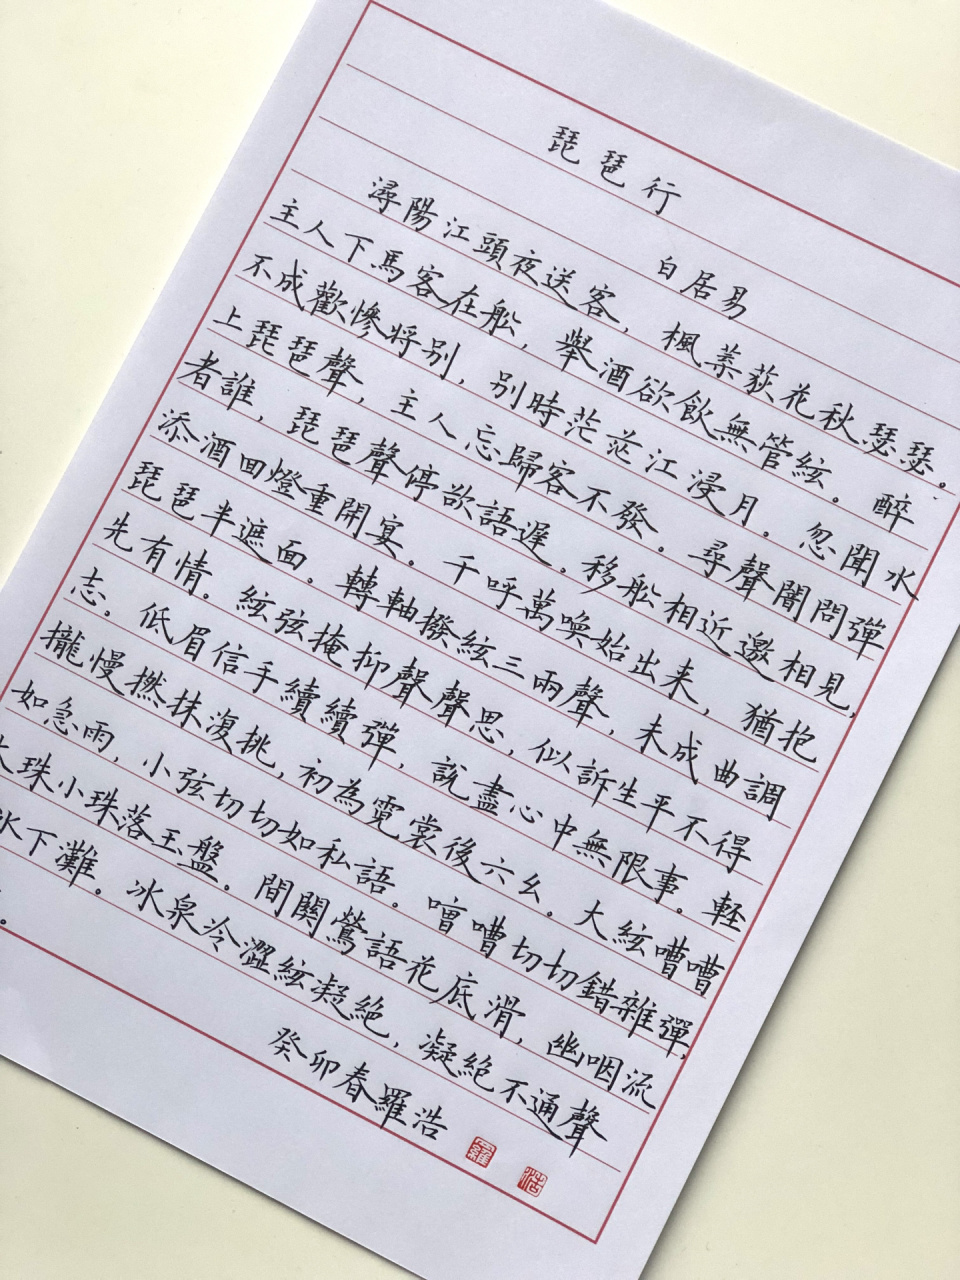 琵琶行
白居易
潯陽江頭夜送客，楓葉荻花秋瑟瑟。
主人下馬客在船，舉酒欲飲無管絃。醉
不成歡慘將别，别時茫茫江浸月。忽聞水
上琵琶聲，主人忘歸客不發。尋聲闇問彈
者誰，琵琶聲停欲語遲。移船相近邀相見，
添酒回燈重開宴。千呼萬喚始出来，猶抱
琵琶半遮面。轉軸撥絃三兩聲，未成曲調
先有情。絃弦掩抑聲聲思，似訴生平不得
志。低眉信手續續彈，說盡心中無限事。輕
攏慢撚抹復挑，初為霓裳後六幺。大絃嘈嘈
如急雨，小弦切切如私語。嘈嘈切切錯雜彈，
大珠小珠落玉盤。間關鶯語花底滑，幽咽流
水下灘。冰泉冷澀絃凝絕，凝絕不通聲
。
癸卯春羅浩
羅 浩